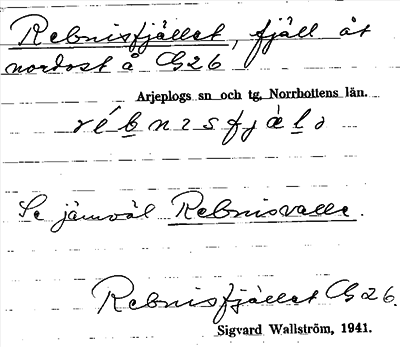 Rebnisfjället, fjäll åt
nordost å G26
Arjeplogs sn och tg, Norrbottens län.
Se jämväl Rebnisvalle.
Rebnisfjället G26.
Sigvard Wallström, 1941.